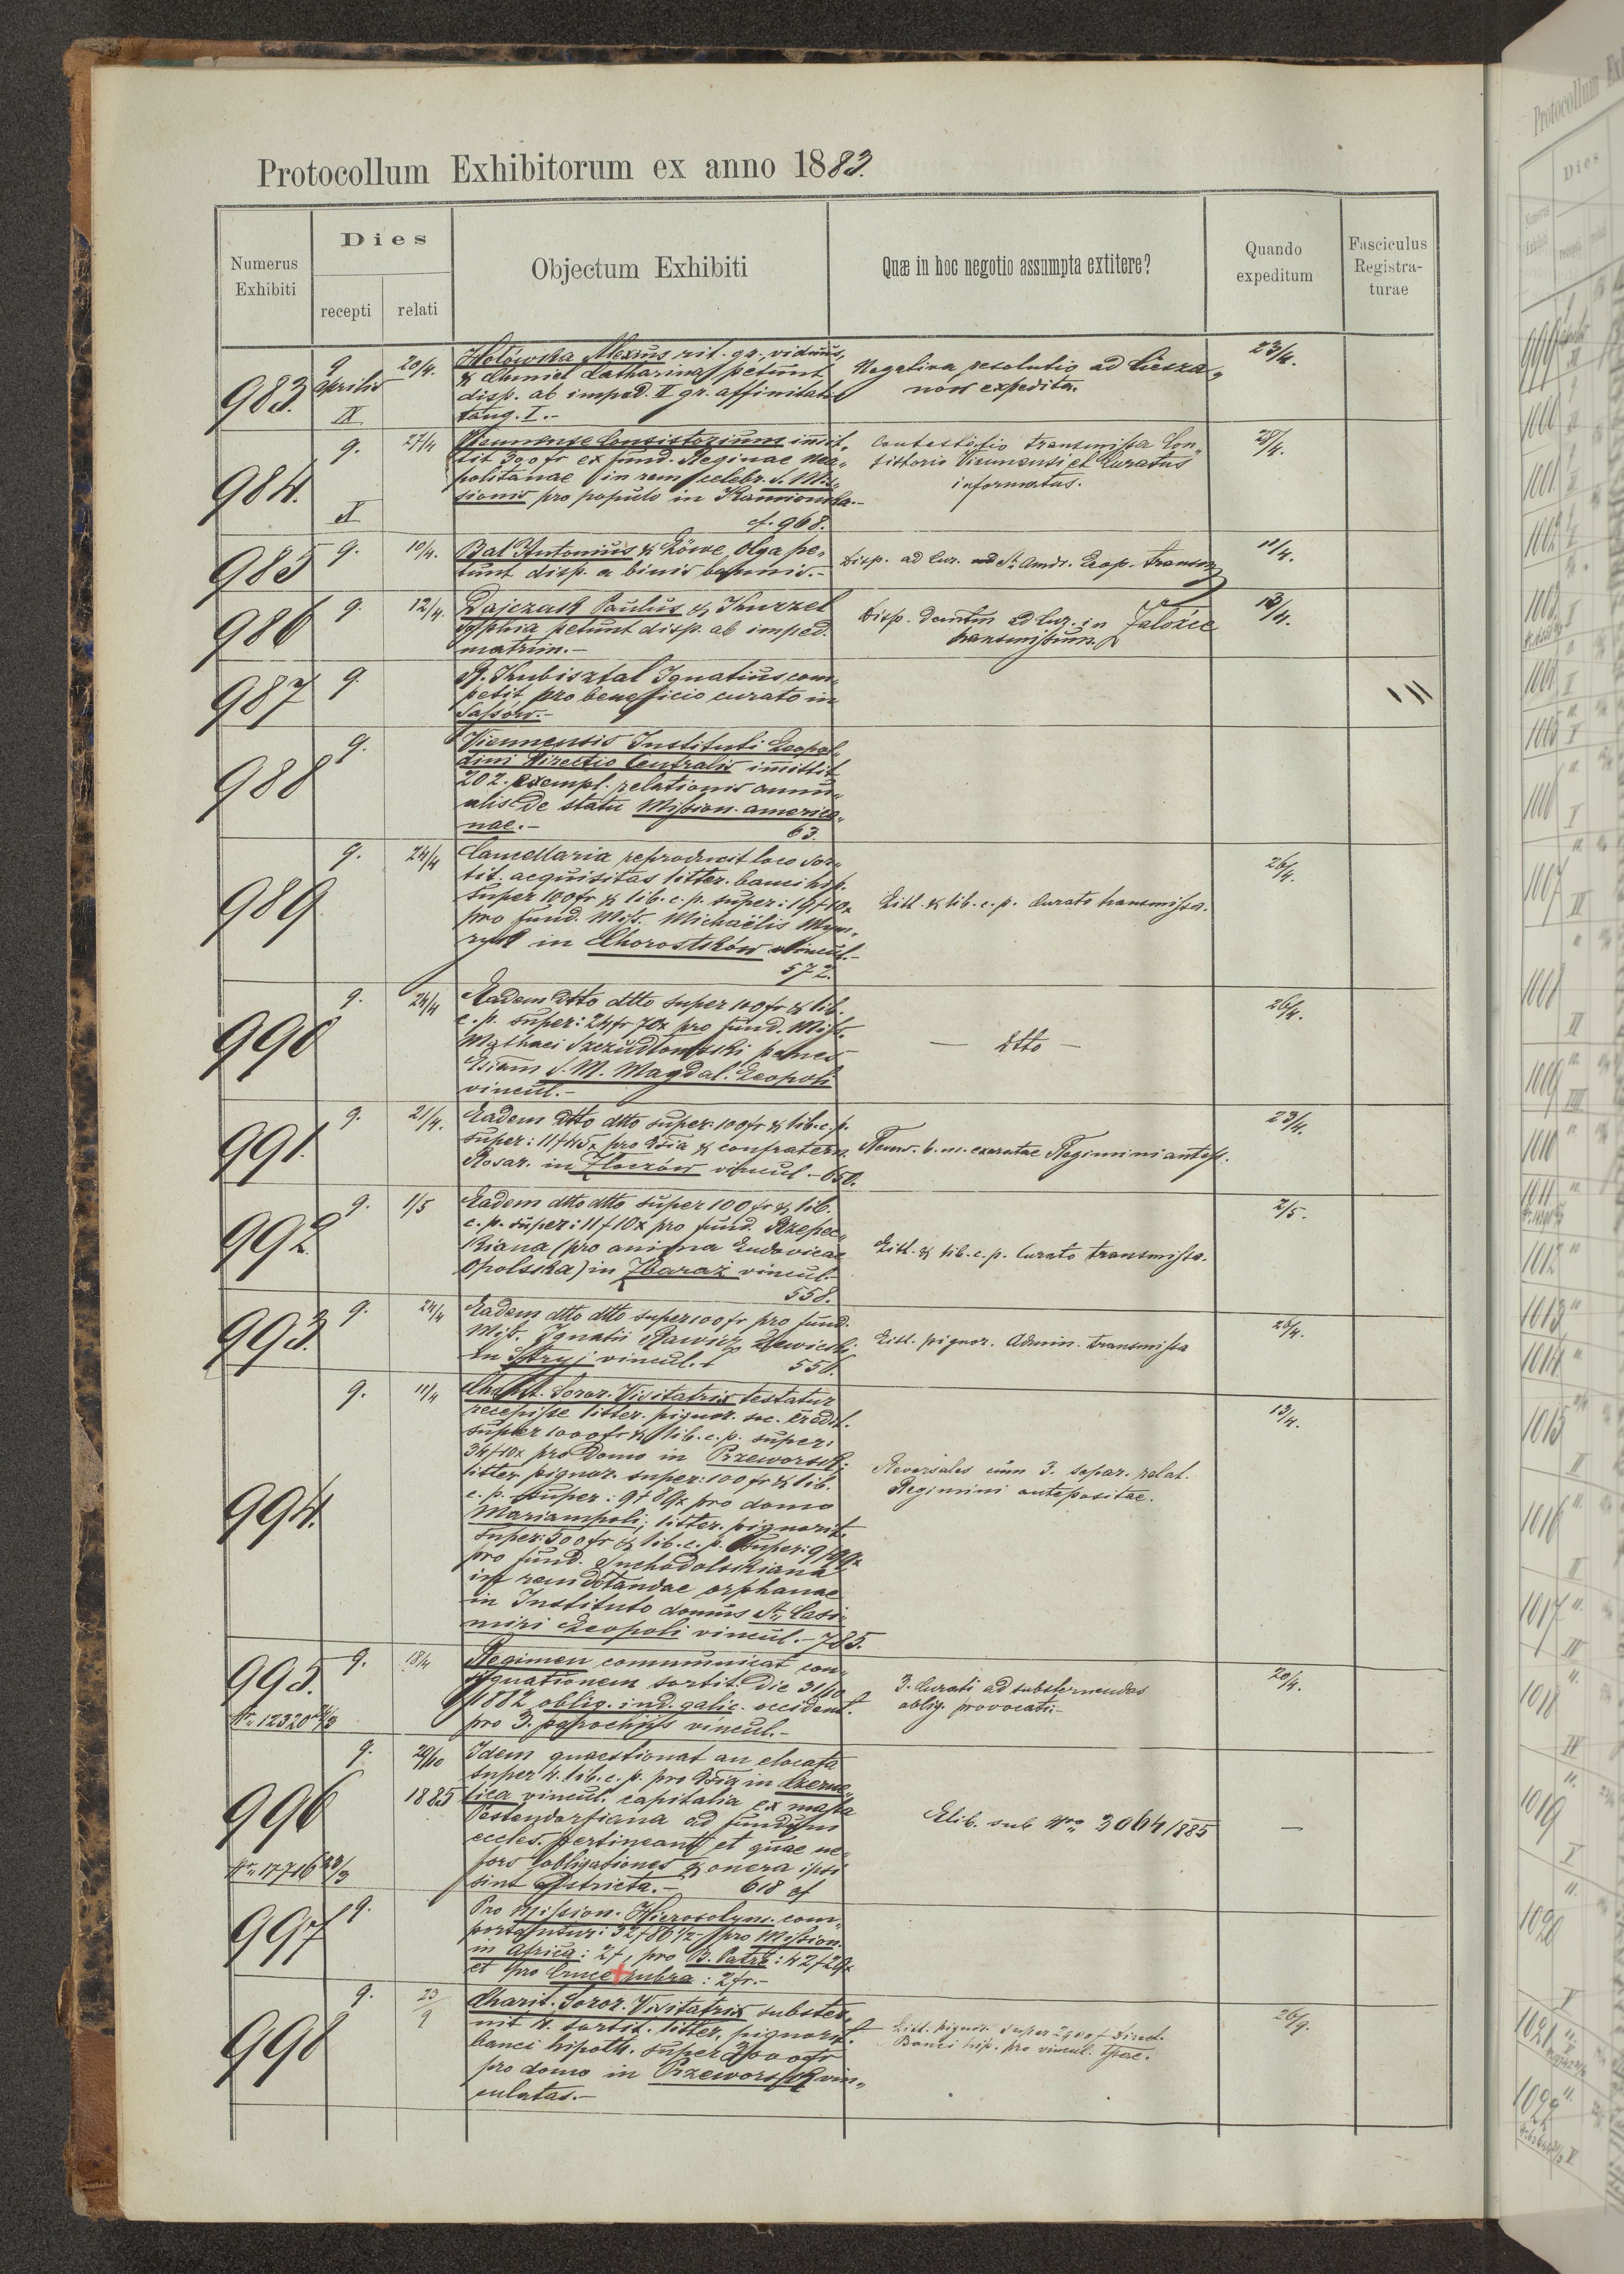 Protocollum Exhibitorum ex anno 1883.
Numerus Exhibiti
Dies
recepti
relati
Objectum Exhibiti
Quæ in hoc negotio assumpta extitere?
Quando expeditum
Fasciculus Registra-turae
983. 9 Aprilis IX 20/4.
Hołówka Alexius rit. gr., viduus,
& Chmiel Catharina petunt
disp. ab imped. II gr. affinitatis
tang. I.-
Negativa resolutio ad Ciesza„
nów expedita.
23/4.
984. 9. X 27/4
Viennense Consistorium immit„
tit 300 fr ex fund. Reginae Nea„
politanae in rem celebr. S. Mis„
sionis pro populo in Kamionka.-
cf. 968.
Contestatio transmissa Con„
sistorio Viennensi et Curatus
informatus.
28/4.
985 9. 10/4.
Bal Antonius & Löwe Olga pe„
tunt disp. a binis bannis.-
Disp. ad Cur. ad St. Andr. Leop. transm.
11/4.
986 9. 12/4.
Dajczak Paulus & Kurzel
Sophia petunt disp. ab imped.
matrim.-
Disp. ad Cur. in Załoźce
transmissum.
13/4.
987 9.
R. Kubisztal Ignatius com„
petit pro beneficio curato in
Sassów.-
988 9.
Viennensis Instituti Leopol„
dini Directio Centralis immittit
202. exempl. relationis annu„
alis de statu Mission. america„
nae.-
63.
989 9. 24/4
Cancellaria reproducit loco sor„
tit. acquisitas litter. banci hip.
super 100 fr & lib. c. p. super: 19 f 10x
pro fund. Miss. Michaëlis
in Chorostków vincul.-
572.
Litt. & lib. c. p. Curato transmissa.
26/4.
990 9. 24/4
Eadem dtto dtto super 100 fr & lib.
c. p. super: 24 fr 70x pro fund. Miss.
Mathaei penes
Eccl̄am S. M. Magdal. Leopoli
vincul.-
— dtto —
26/4.
991. 9. 21/4.
Eadem dtto dtto super: 100 fr & lib. c. p.
super: pro & confratern.
Rosar. in Złoczów vincul.- 650.
Revers. b. m. exaratae Regimini antep.
23/4.
992. 9. 1/5
Eadem dtto dtto super 100 fr & lib.
c. p. super: 11 f 10x pro fund. Rzepec„
kiana (pro anima Ludovicae
Opolska) in Zbaraż vincul.-
558.
Litt. & lib. c. p. Curato transmissa.
2/5.
993. 9. 24/4
Eadem dtto dtto super 100 fr pro fund.
Miss. Ignatii Rawicz
in Stryj vincul.
556.
Litt. pignor. Admin. transmissa
28/4.
994. 9. 11/4
Charit. Soror. Visitatrix testatur
recepisse litter. pignor. soc. credit.
super 1000 fr & lib. c. p. super:
34 f 10x pro domo in Przeworsk;
litter. pignor. super: 100 fr & lib.
c. p. super: 9 f 89x pro domo
Mariampoli; litter. pignorit.
super: 500 fr & lib. c. p. super: 9 f 99x
pro fund. Suchodolskiana
in rem dotandae orphanae
in Instituto domus St. Casi„
miri Leopoli vincul.- 785.
Reversales cum 3. separ. relat.
Regimini antepositae.
13/4.
995. 9. 18/4
N. 12320
Regimen communicat con„
signationem sortit. die 31/10
1882 oblig. ind. galic. occident.
pro 3. parochiis vincul.-
3. Curati ad substernendas
oblig. provocati.-
20/4.
996 9. 29/10 1885
N. 17716 23/3
Idem quaestionat an elocata
super 4. lib. c. p. pro in Czerne„
lica vincul. capitalia ex massa
ad fundum
eccles. pertineant et quae ne„
fors obligationes & onera ipsi
sint adstricta.- 618 cf
Elib. sub Nro. 3064/885
—
997 9.
Pro Mission. Hierosolym. com„
portantur: 32 f 86 1/2 - pro Mission
in Africa: 2 f, pro B. Patre: 42 f 29x
et pro Cruce + rubra: 2 fr.-
998 9. 23/9
Charit. Soror. Visitatrix subster„
nit 4. sortit. litter. pignorit.
banci hipoth. super 3000 fr
pro domo in Przeworsk vin„
culatas.-
Litt. pignor. super Direct.
Banci hip. pro vincul.
26/9.
Protocollum
Dies
999
1000
1001
1002
1003
1004
1005
1006
1007
1008
1009
1010
1011
1012
1013
1014
1015
1016
1017
1018
1019
1020
1021
1022